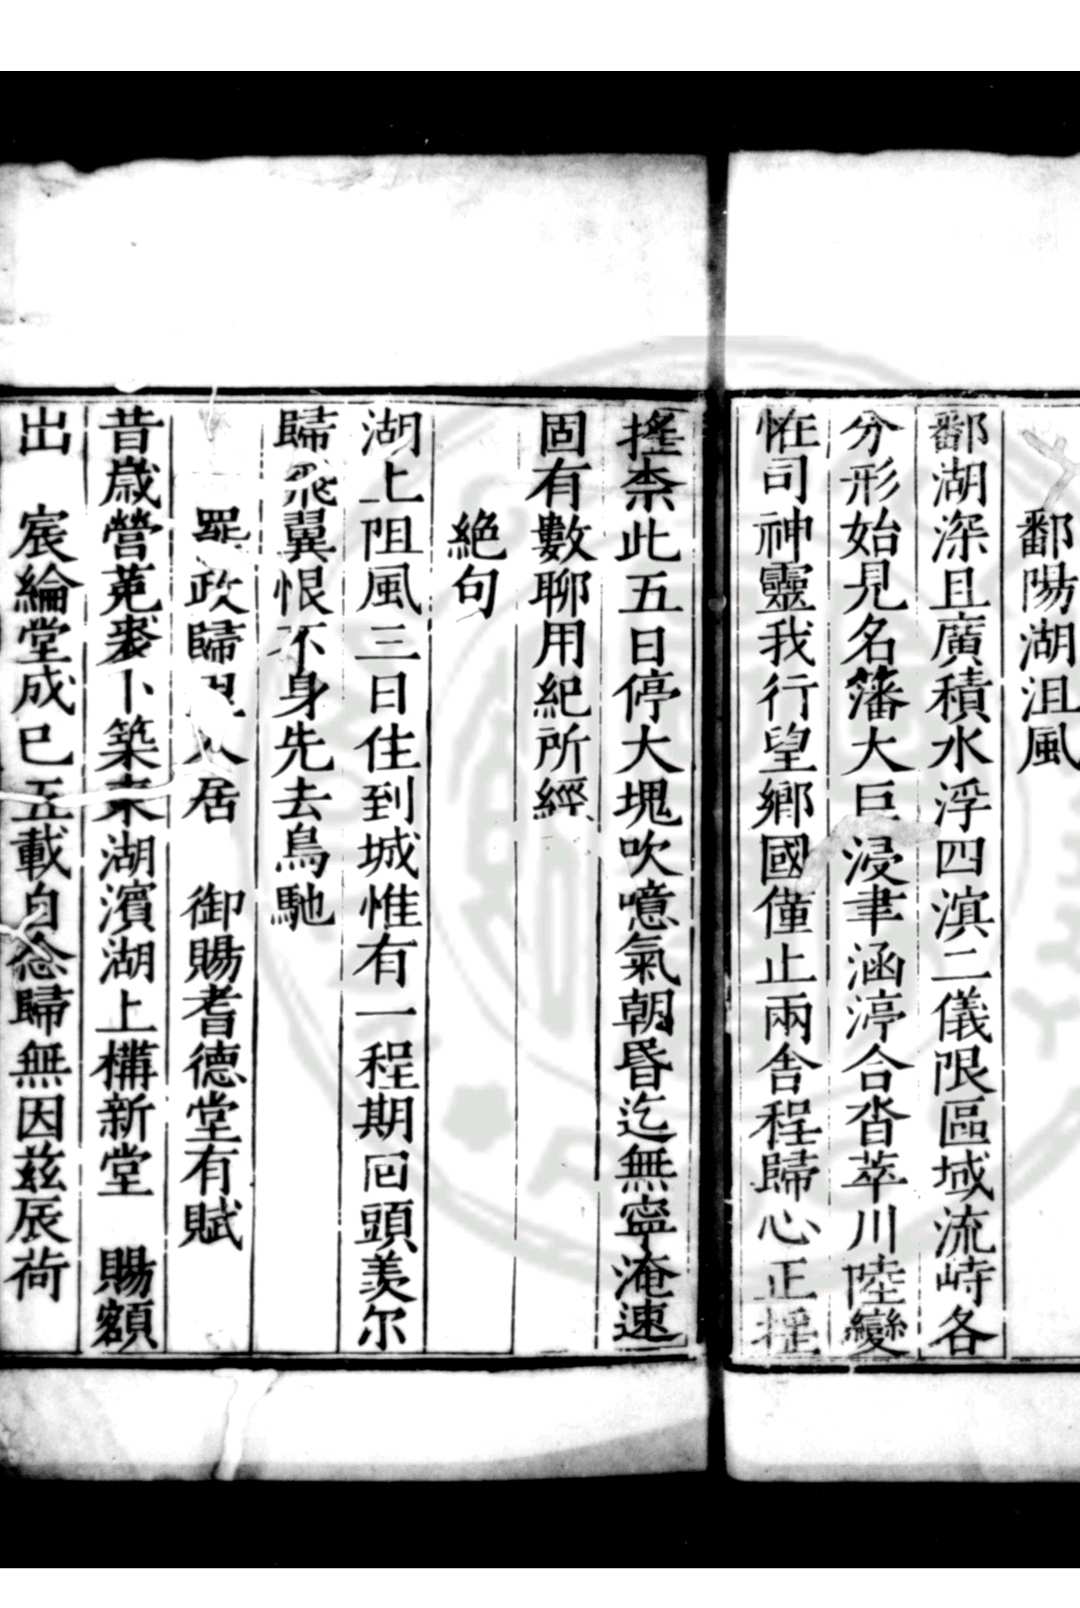 鄱陽湖沮風
鄱湖深且廣積水浮四溟二儀限區域流峙各
分形始見名藩大巨浸聿涵渟合沓萃川陸變
恠司神靈我行望鄉國僅止兩舎程歸心正揺
揺柰此五日停大塊吹噫氣朝昏迄無寧淹速
固有數聊用紀所經
絶句
湖上阻風三日住到城惟有一程期囘頭羡尔
歸飛翼恨不身先去鳥馳
罷政歸 居 御賜耆德堂有賦
昔歲營菟裘卜築東湖濱湖上構新堂 賜額
出 宸綸堂成已五載自念歸無因兹辰荷